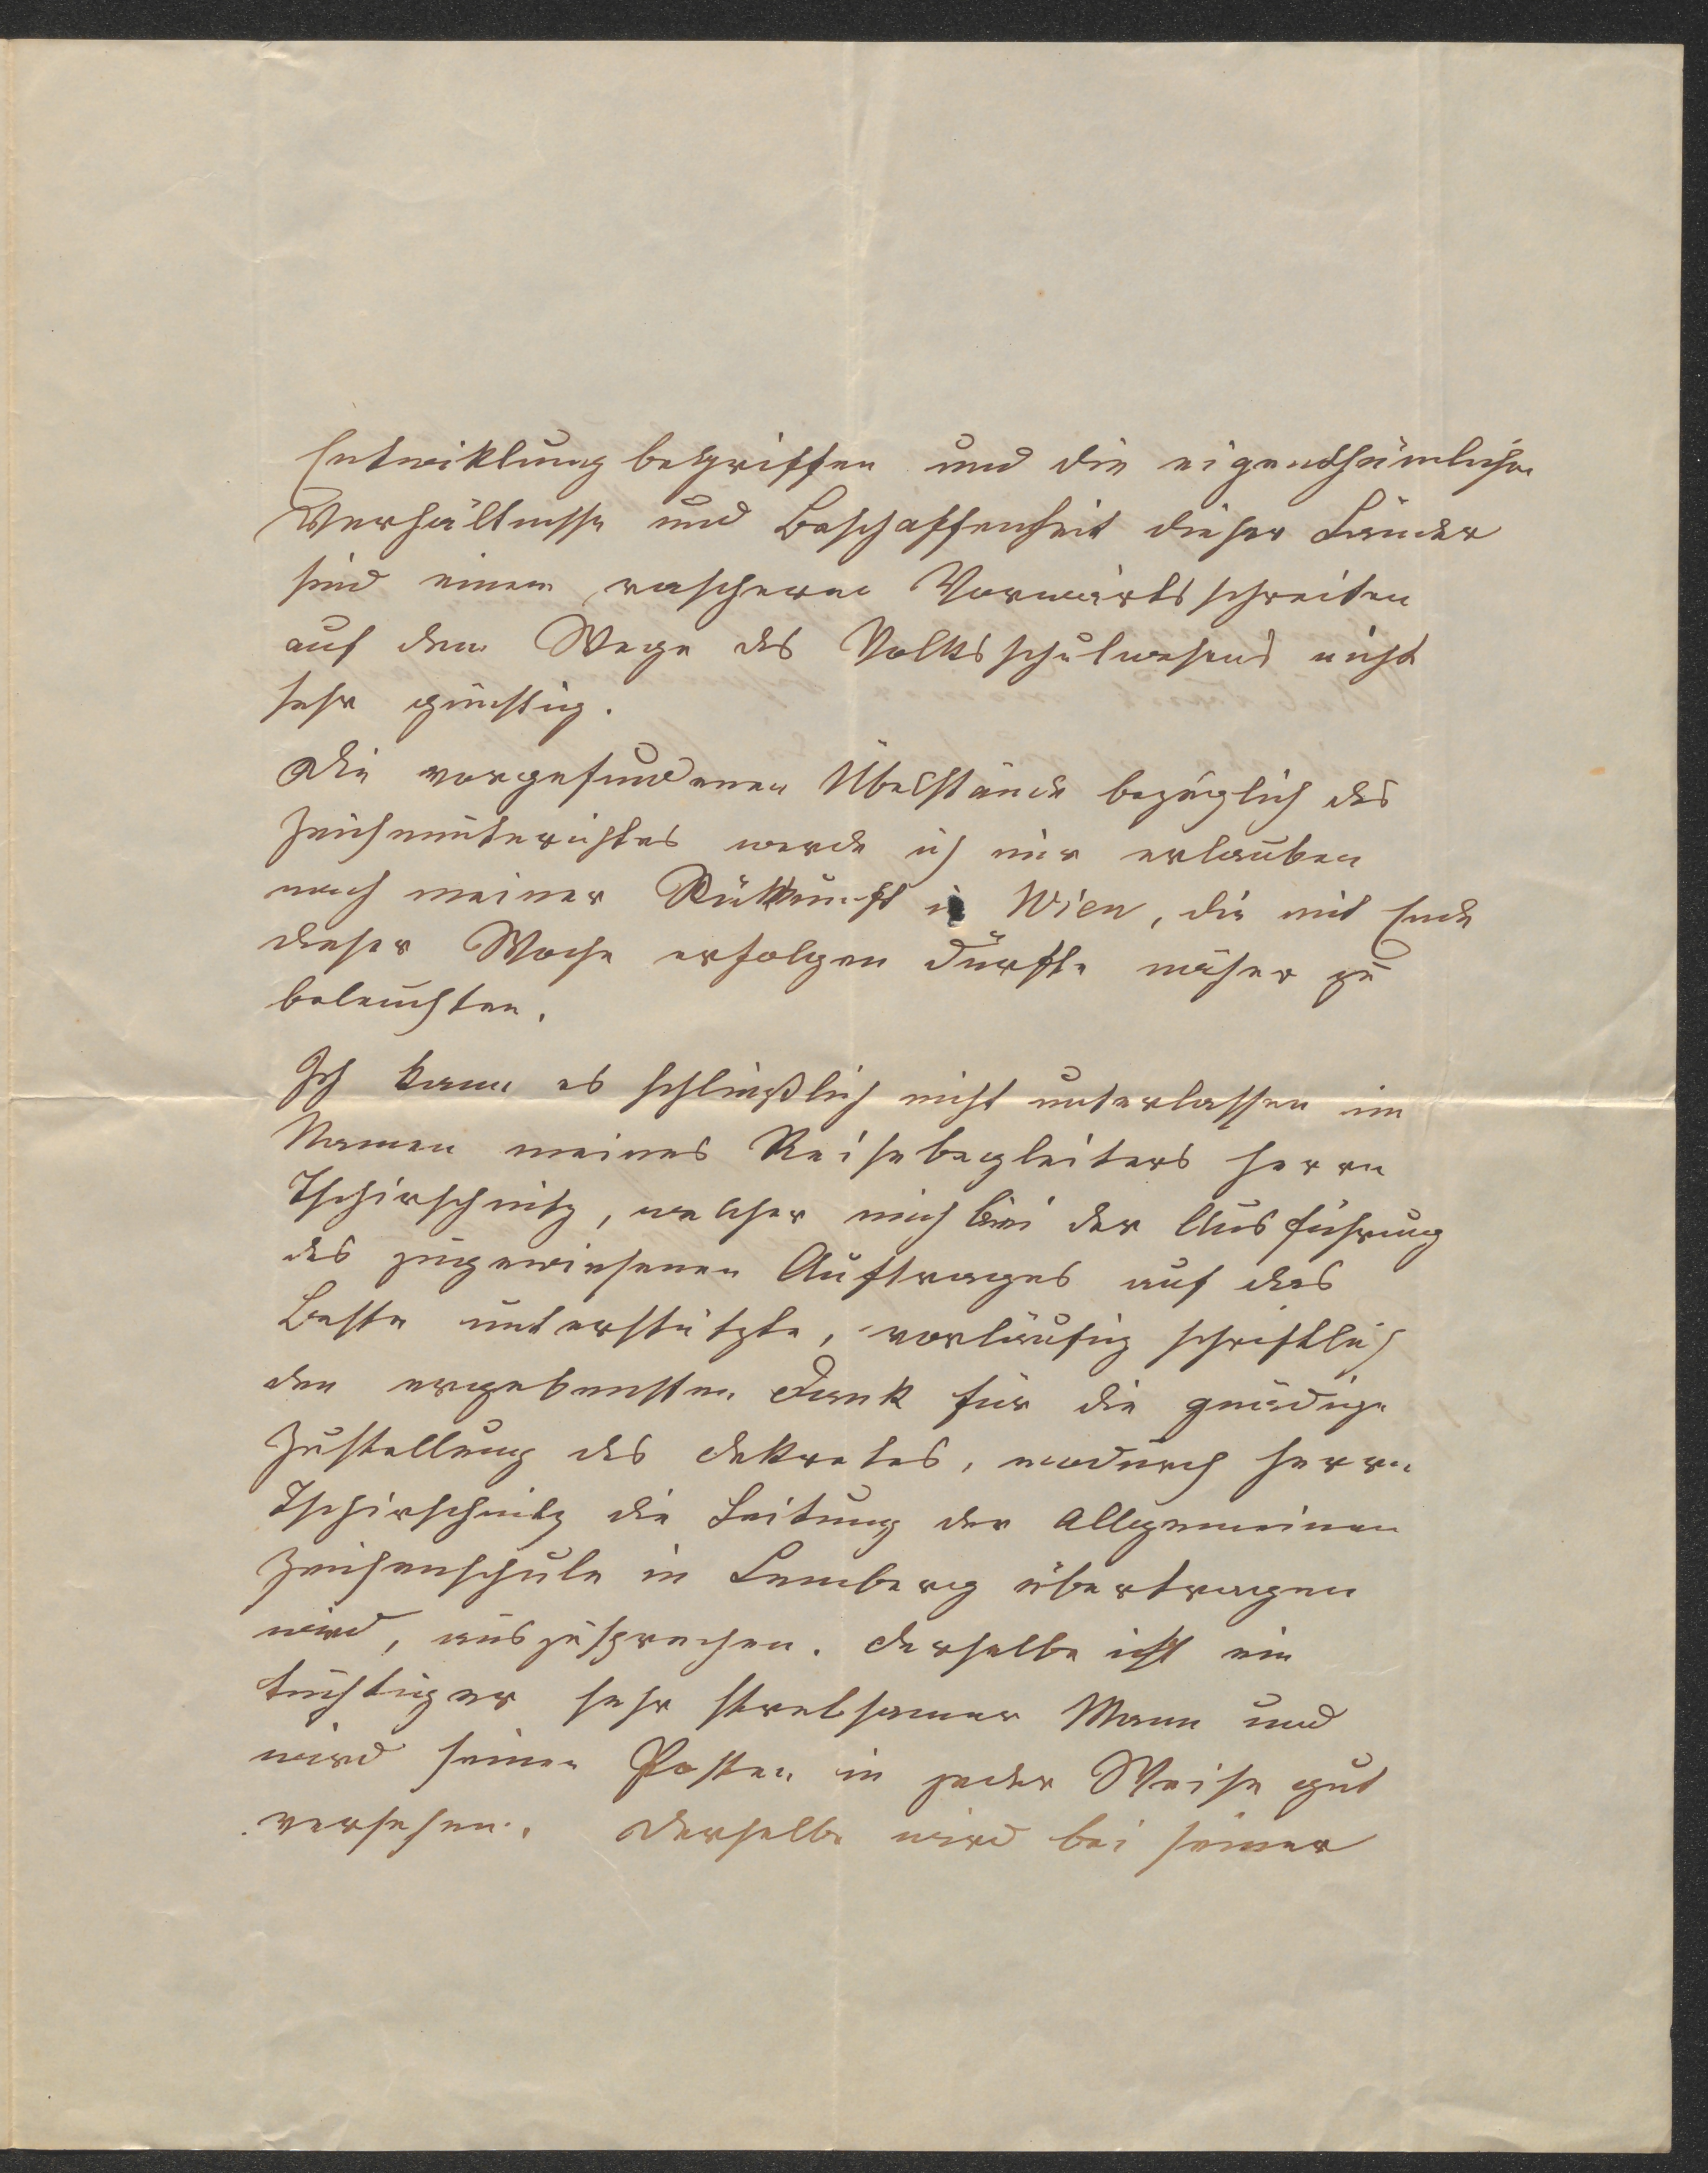 Entwiklung begriffen und die eigenthümlichen
Verhältnisse und Beschaffenheit dieser Länder
sind einem rascheren Vorwärtsschreiten
auf dem Wege des Volksschulwesens nicht
sehr günstig.
Die vorgefundenen Übelstände bezüglich des
Zeichenunterichtes werde ich mir erlauben
nach meiner Rükkunft in Wien, die mit Ende
dieser Woche erfolgen dürfte näher zu
beleuchten.
Ich kann es schließlich nicht unterlassen im
Namen meines Reisebegleiters Herrn
Tschirschnitz, welcher mich bei der Ausführung
des zugewiesenen Auftrages auf das
Beste unterstützte, vorläufig schriftlich
den ergebensten Dank für die gnädige
Zustellung des Dekretes, wodurch Herrn
Tschirschnitz die Leitung der Allgemeinen
Zeichenschule in Lemberg übertragen
wird, auszusprechen. Derselbe ist ein
tüchtiger sehr strebsamer Mann und
wird seinen Posten in jeder Weise gut
versehen. Derselbe wird bei seiner